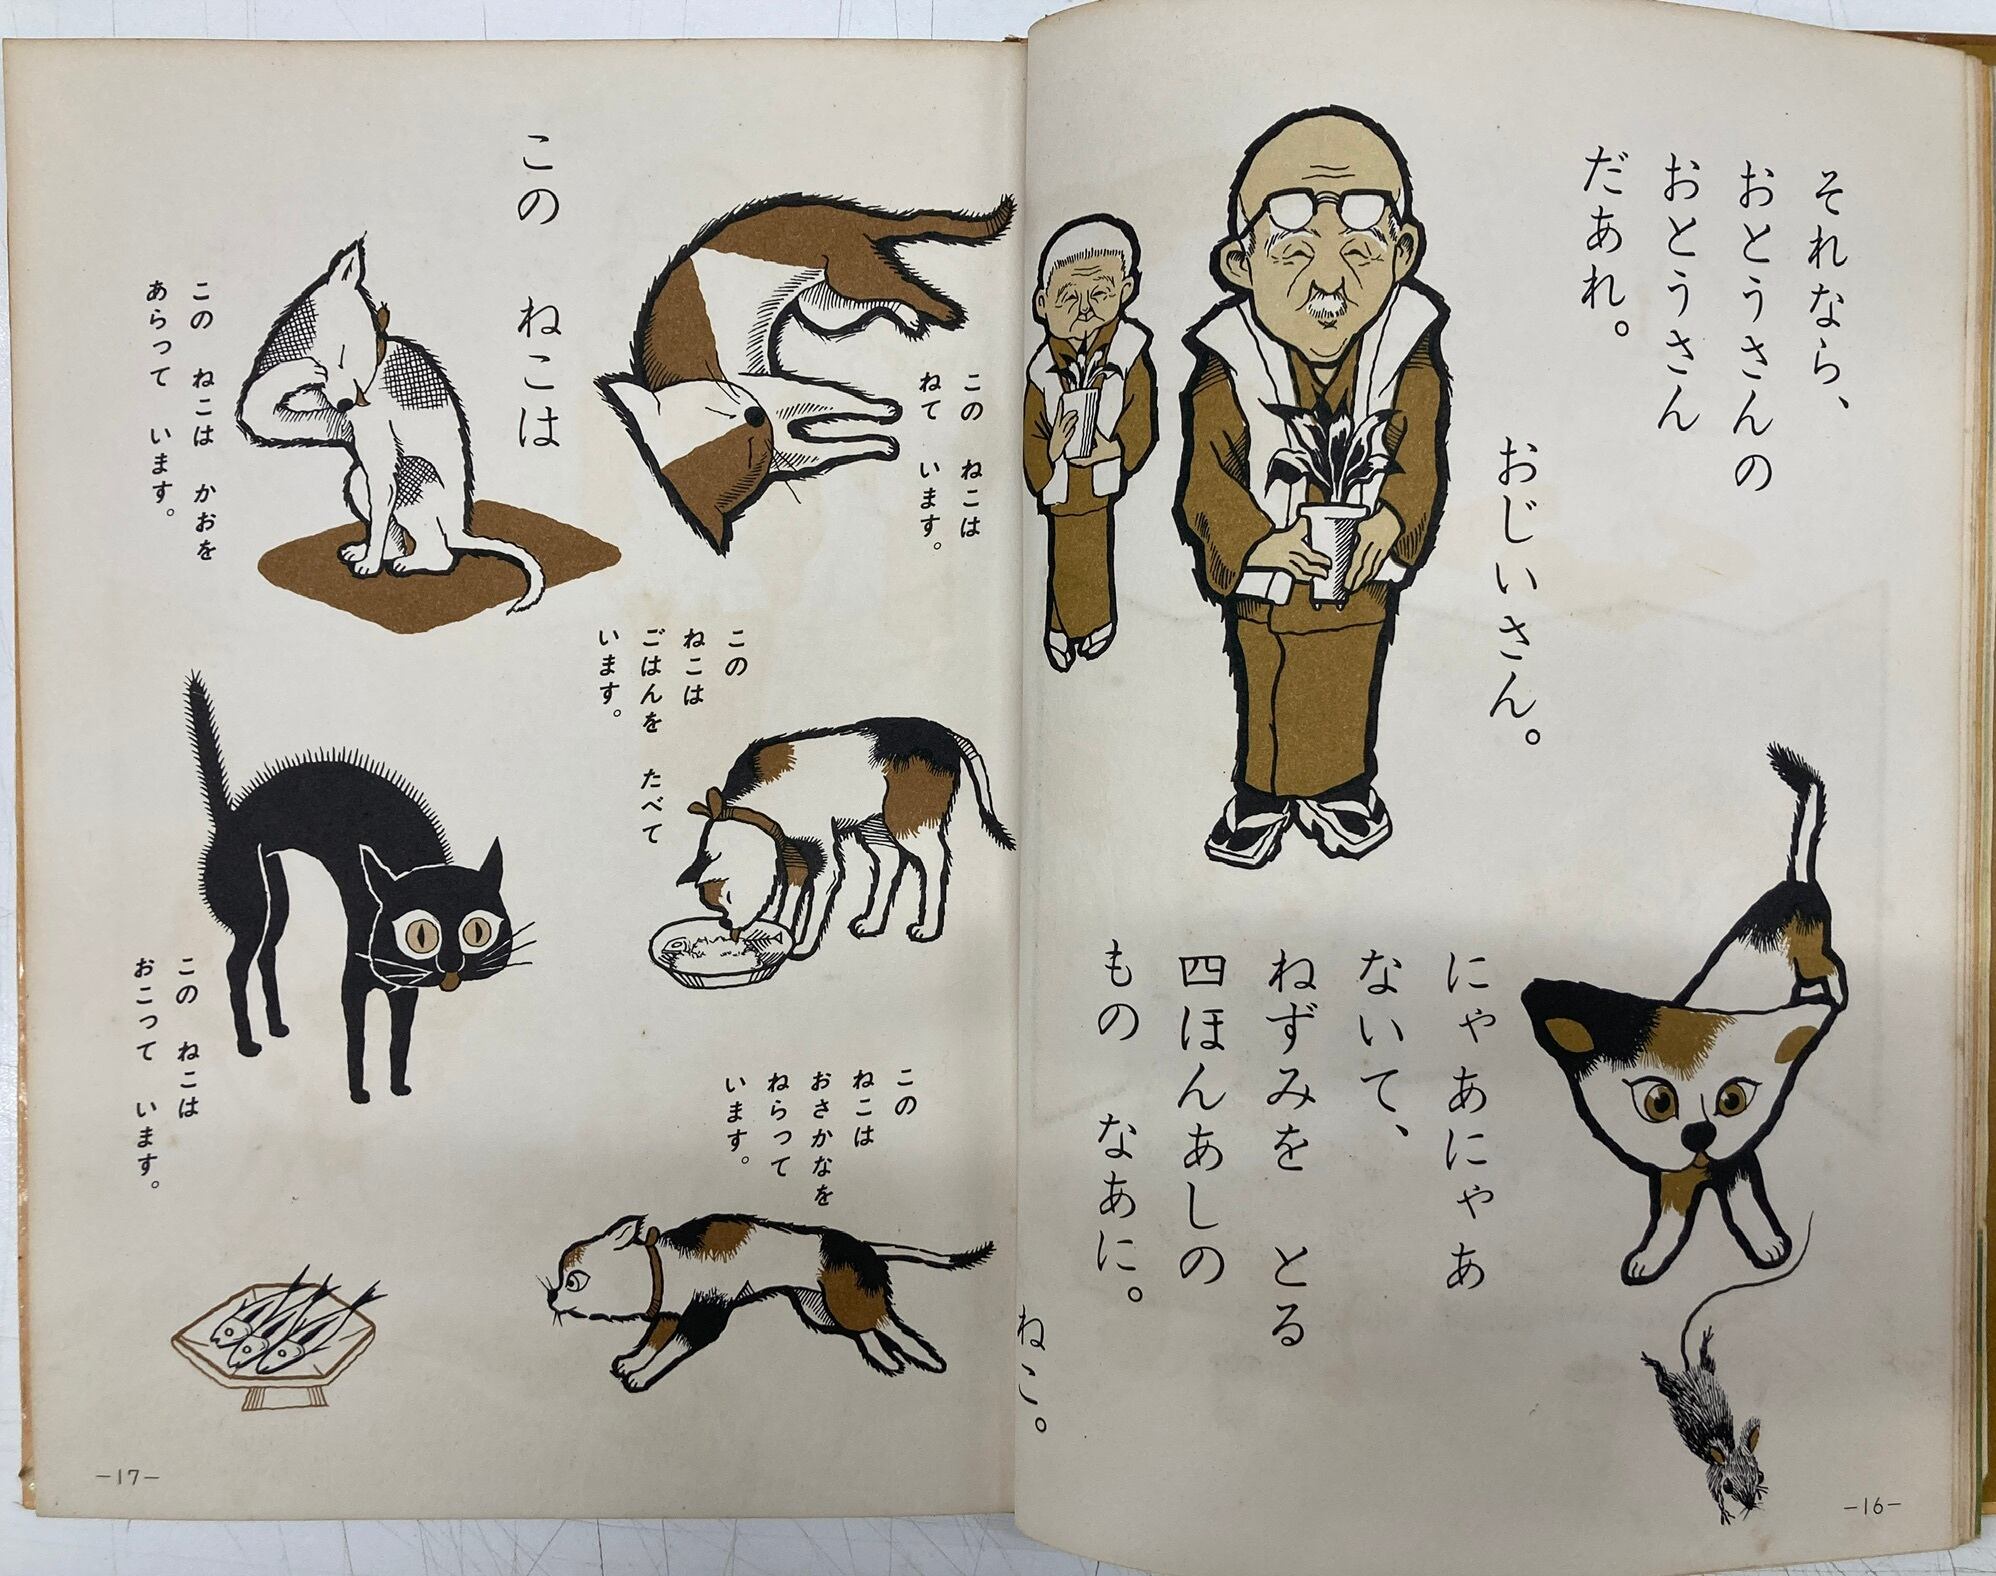 それなら、
おとうさんの
おとうさん
だあれ。
おじいさん。
にゃあにゃあ
ないて、
ねずみを とる
四ほんあしの
もの なあに。
ねこ。
—16—
この ねこは
この ねこは
ねて います。
この ねこは かおを
あらって います。
この
ねこは
ごはんを たべて
います。
この ねこは
おこって います。
この
ねこは
おさかなを
ねらって
います。
—17—